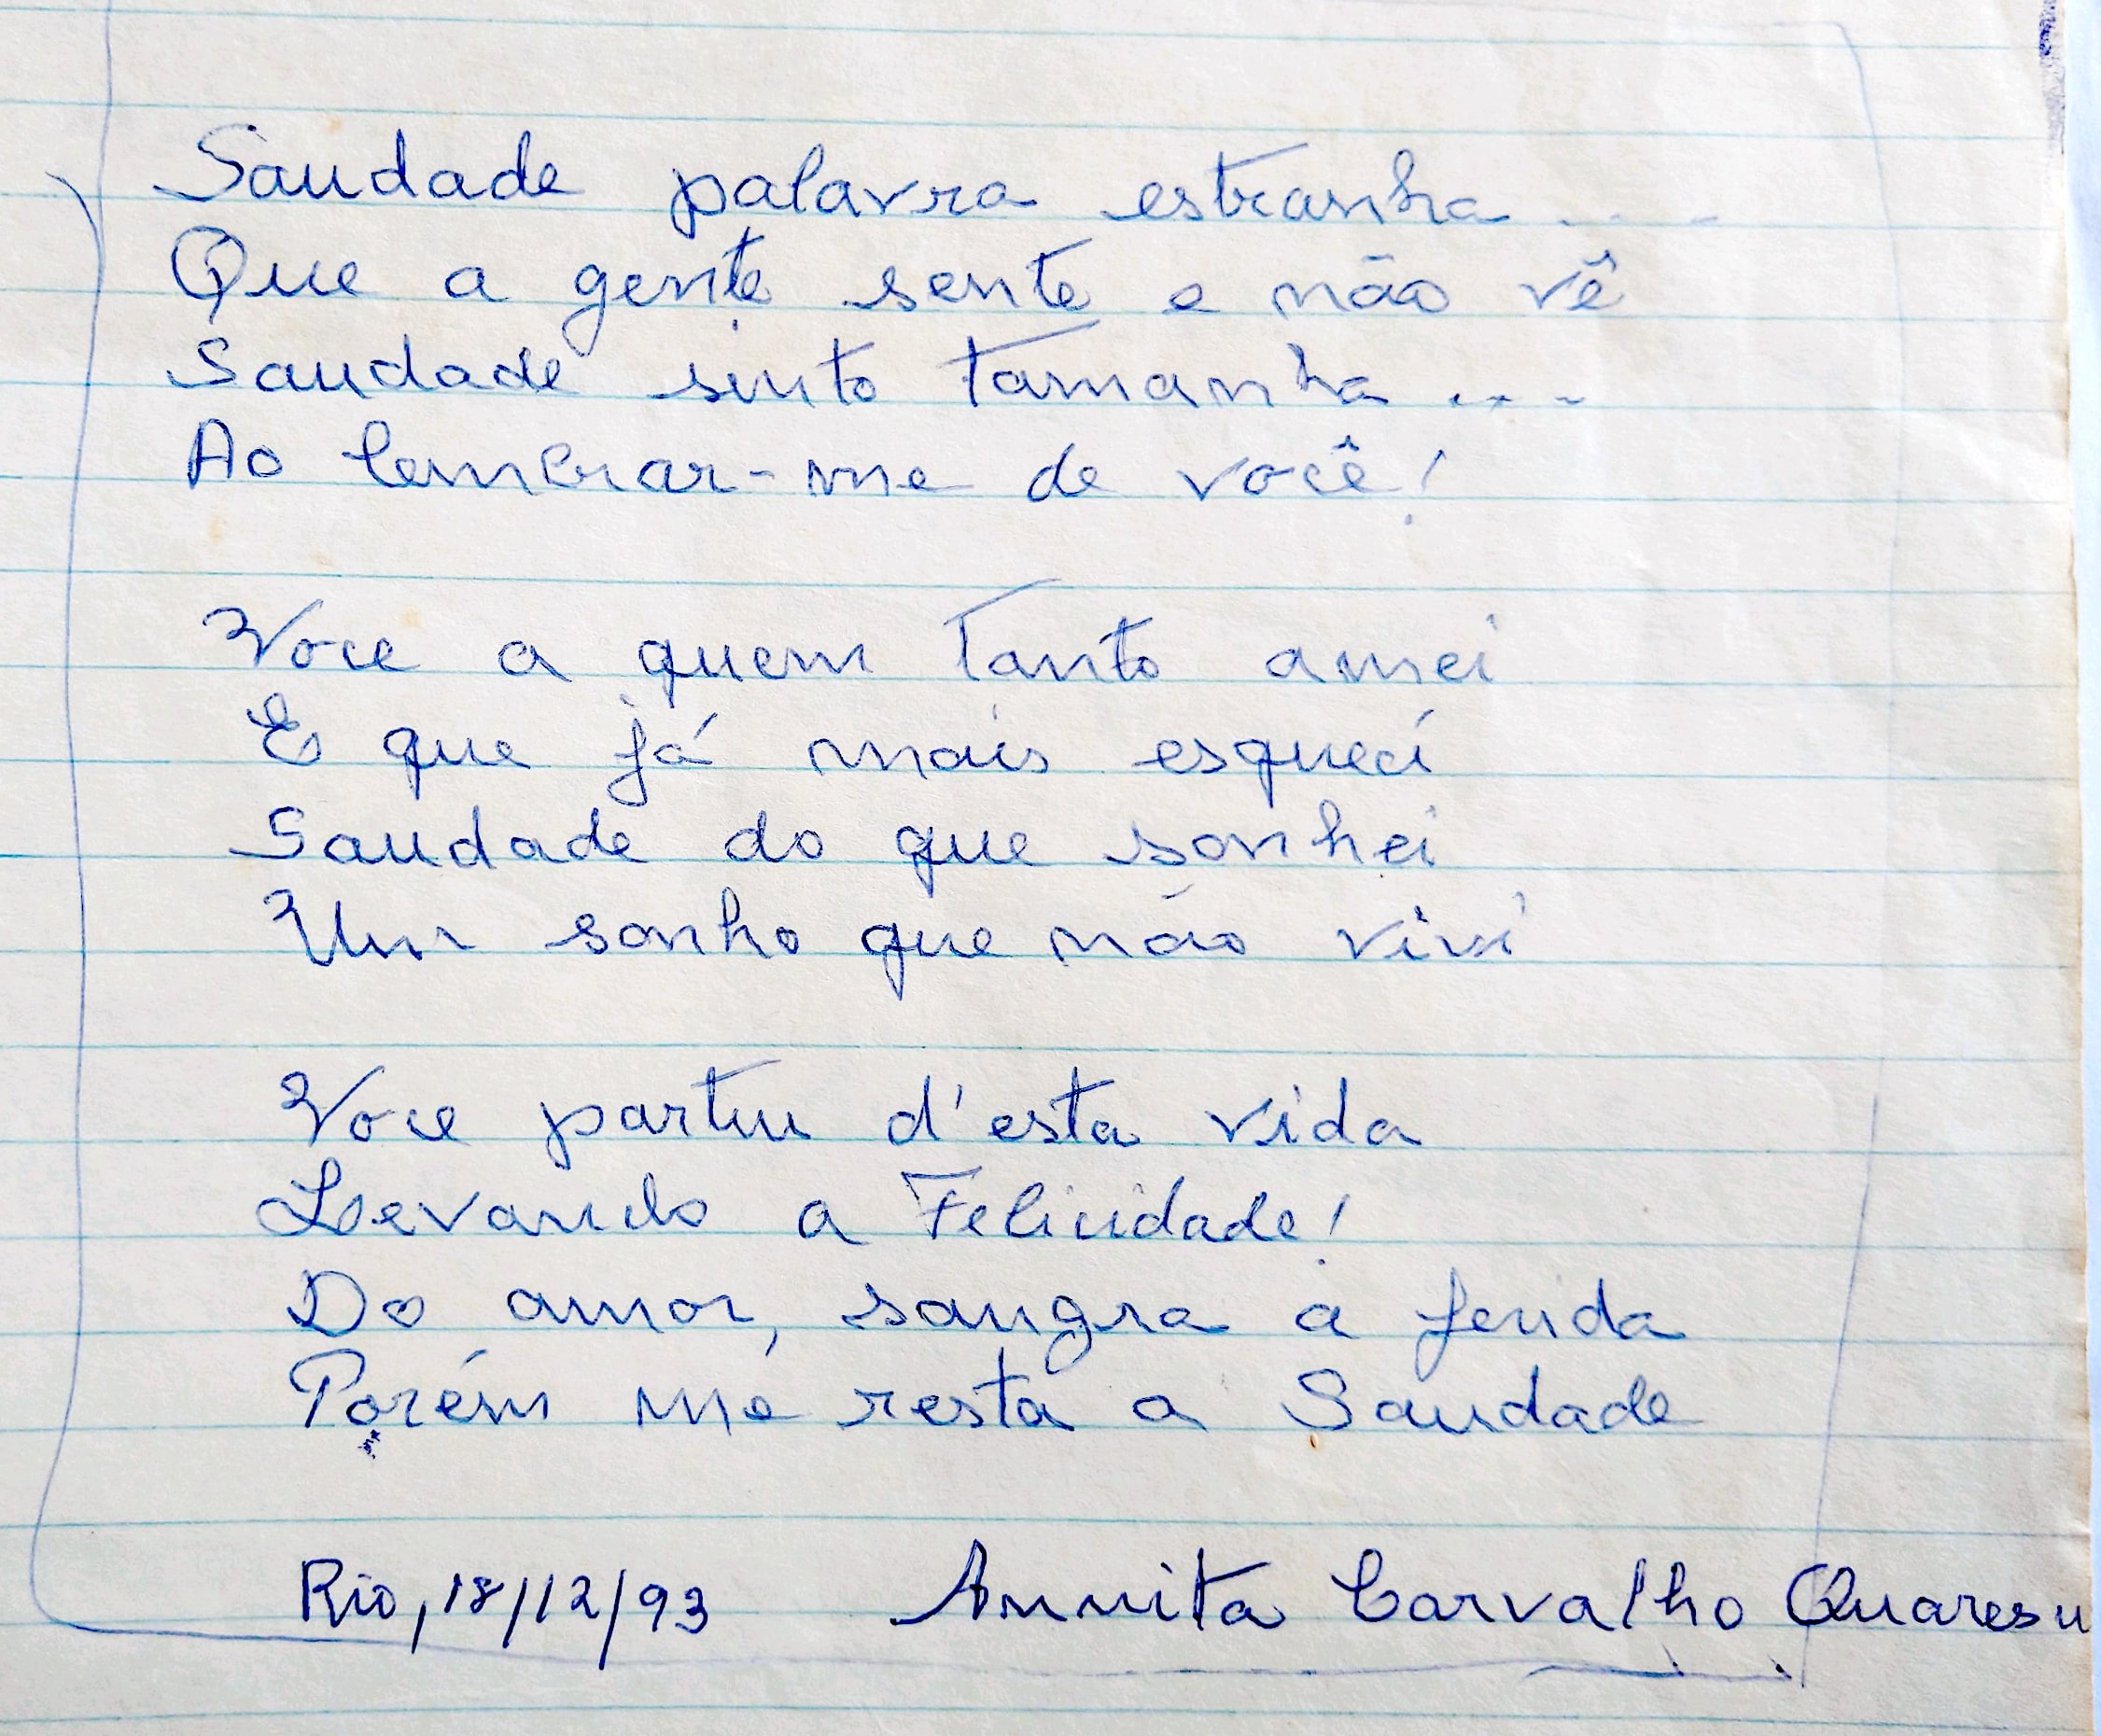 Saudade palavra estranha....
Que a gente sente e não vê
Saudade sinto tamanha...
Ao lembrar-me de você!
Voce a quem tanto amei
E que já mais esquecí
Saudade do que sonhei
Um sonho que não vivi
Voce partiu d'esta vida
Levando a Felicidade!
Do amor, sangra a ferida
Porém me resta a Saudade
Rio, 18/12/93 Annita Carvalho